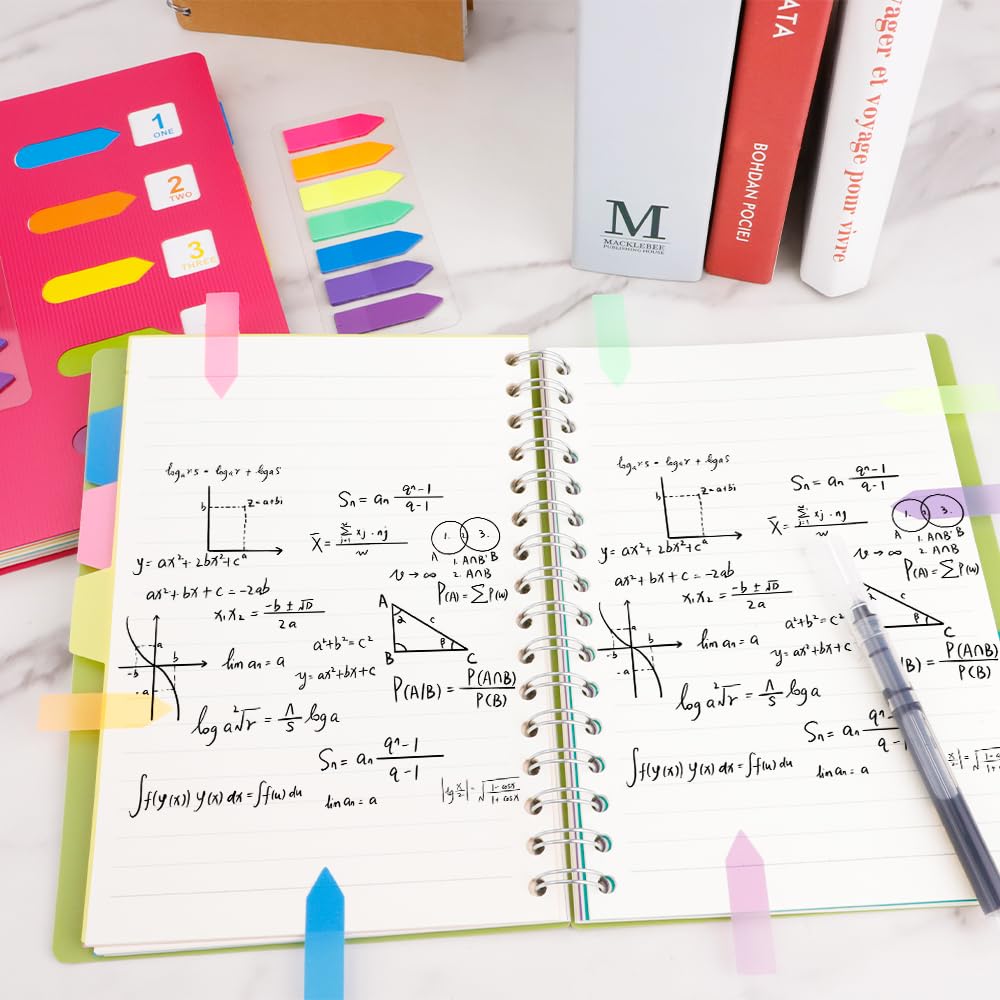 1
ONE
2
TWO
3
THREE
M
MACKLEBEE
PUBLISHING HOUSE
ATA
BOHDAN POCIEJ
yager et voyage pour vivre
logₐrs = logₐr + logₐs
b
z=a+bi
a
Sₙ = aₙ (qⁿ-1)/(q-1)
X̄ = (Σ xj·nj)/w
1. 2 3.
A B
1. A∩B'
2. A∩B
y = ax²+2bx²+c
v→∞
P(A) = ΣP(w)
ax²+bx+c = -2ab
x₁x₂ = (-b ± √D)/2a
A
α
c
β
B
C
a
b
-b
-a
a²+b²=c²
lim aₙ = a
y=ax²+bx+c
P(A|B) = P(A∩B)/P(B)
log a ²√r = Λ/s log a
Sₙ = aₙ (qⁿ-1)/(q-1)
∫f(y(x)) y(x) dx = ∫f(u) du
lim aₙ = a
|lg x/2| = √((1-cosx)/(1+cosx))
logₐrs = logₐr + logₐs
b
z=a+bi
a
Sₙ = aₙ (qⁿ-1)/(q-1)
X̄ = (Σ xj·nj)/w
1. 2 3.
A B
1. A∩B'
2. A∩B
y = ax²+2bx²+c
v→∞
P(A) = ΣP(w)
ax²+bx+c = -2ab
x₁x₂ = (-b ± √D)/2a
c
β
C
a
b
-b
-a
a²+b²=c²
lim aₙ = a
y=ax²+bx+c
B) = P(A∩B)/P(B)
log a ²√r = Λ/s log a
Sₙ = aₙ qⁿ-1/q-1
∫f(y(x)) y(x) dx = ∫f(u) du
lim aₙ = a